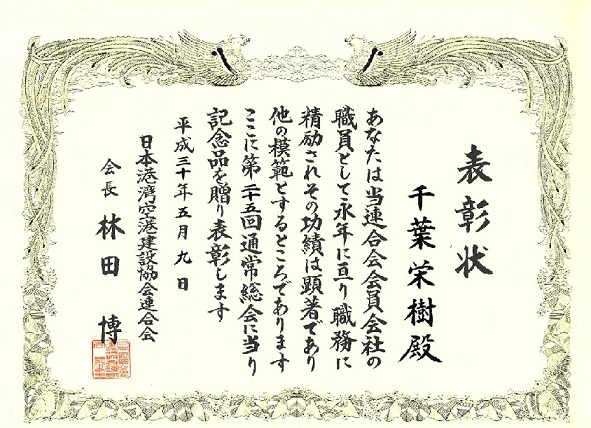 表彰状
千葉栄樹殿
あなたは当連合会会員会社の
職員として永年に亘り職務に
精励されその功績は顕著であり
他の模範とするところであります
ここに第二十五回通常総会に当り
記念品を贈り表彰します
平成三十年五月九日
日本港湾空港建設協会連合会
会長 林田博